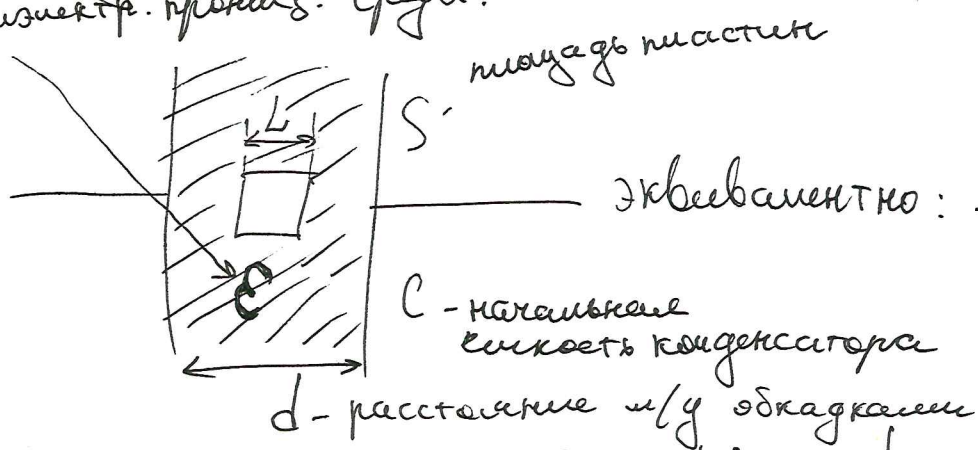 диэлектр. прониц. среды.
площадь пластин
S
L
эквивалентно:
ε
C - начальная
емкость конденсатора
d - расстояние м/у обкладками